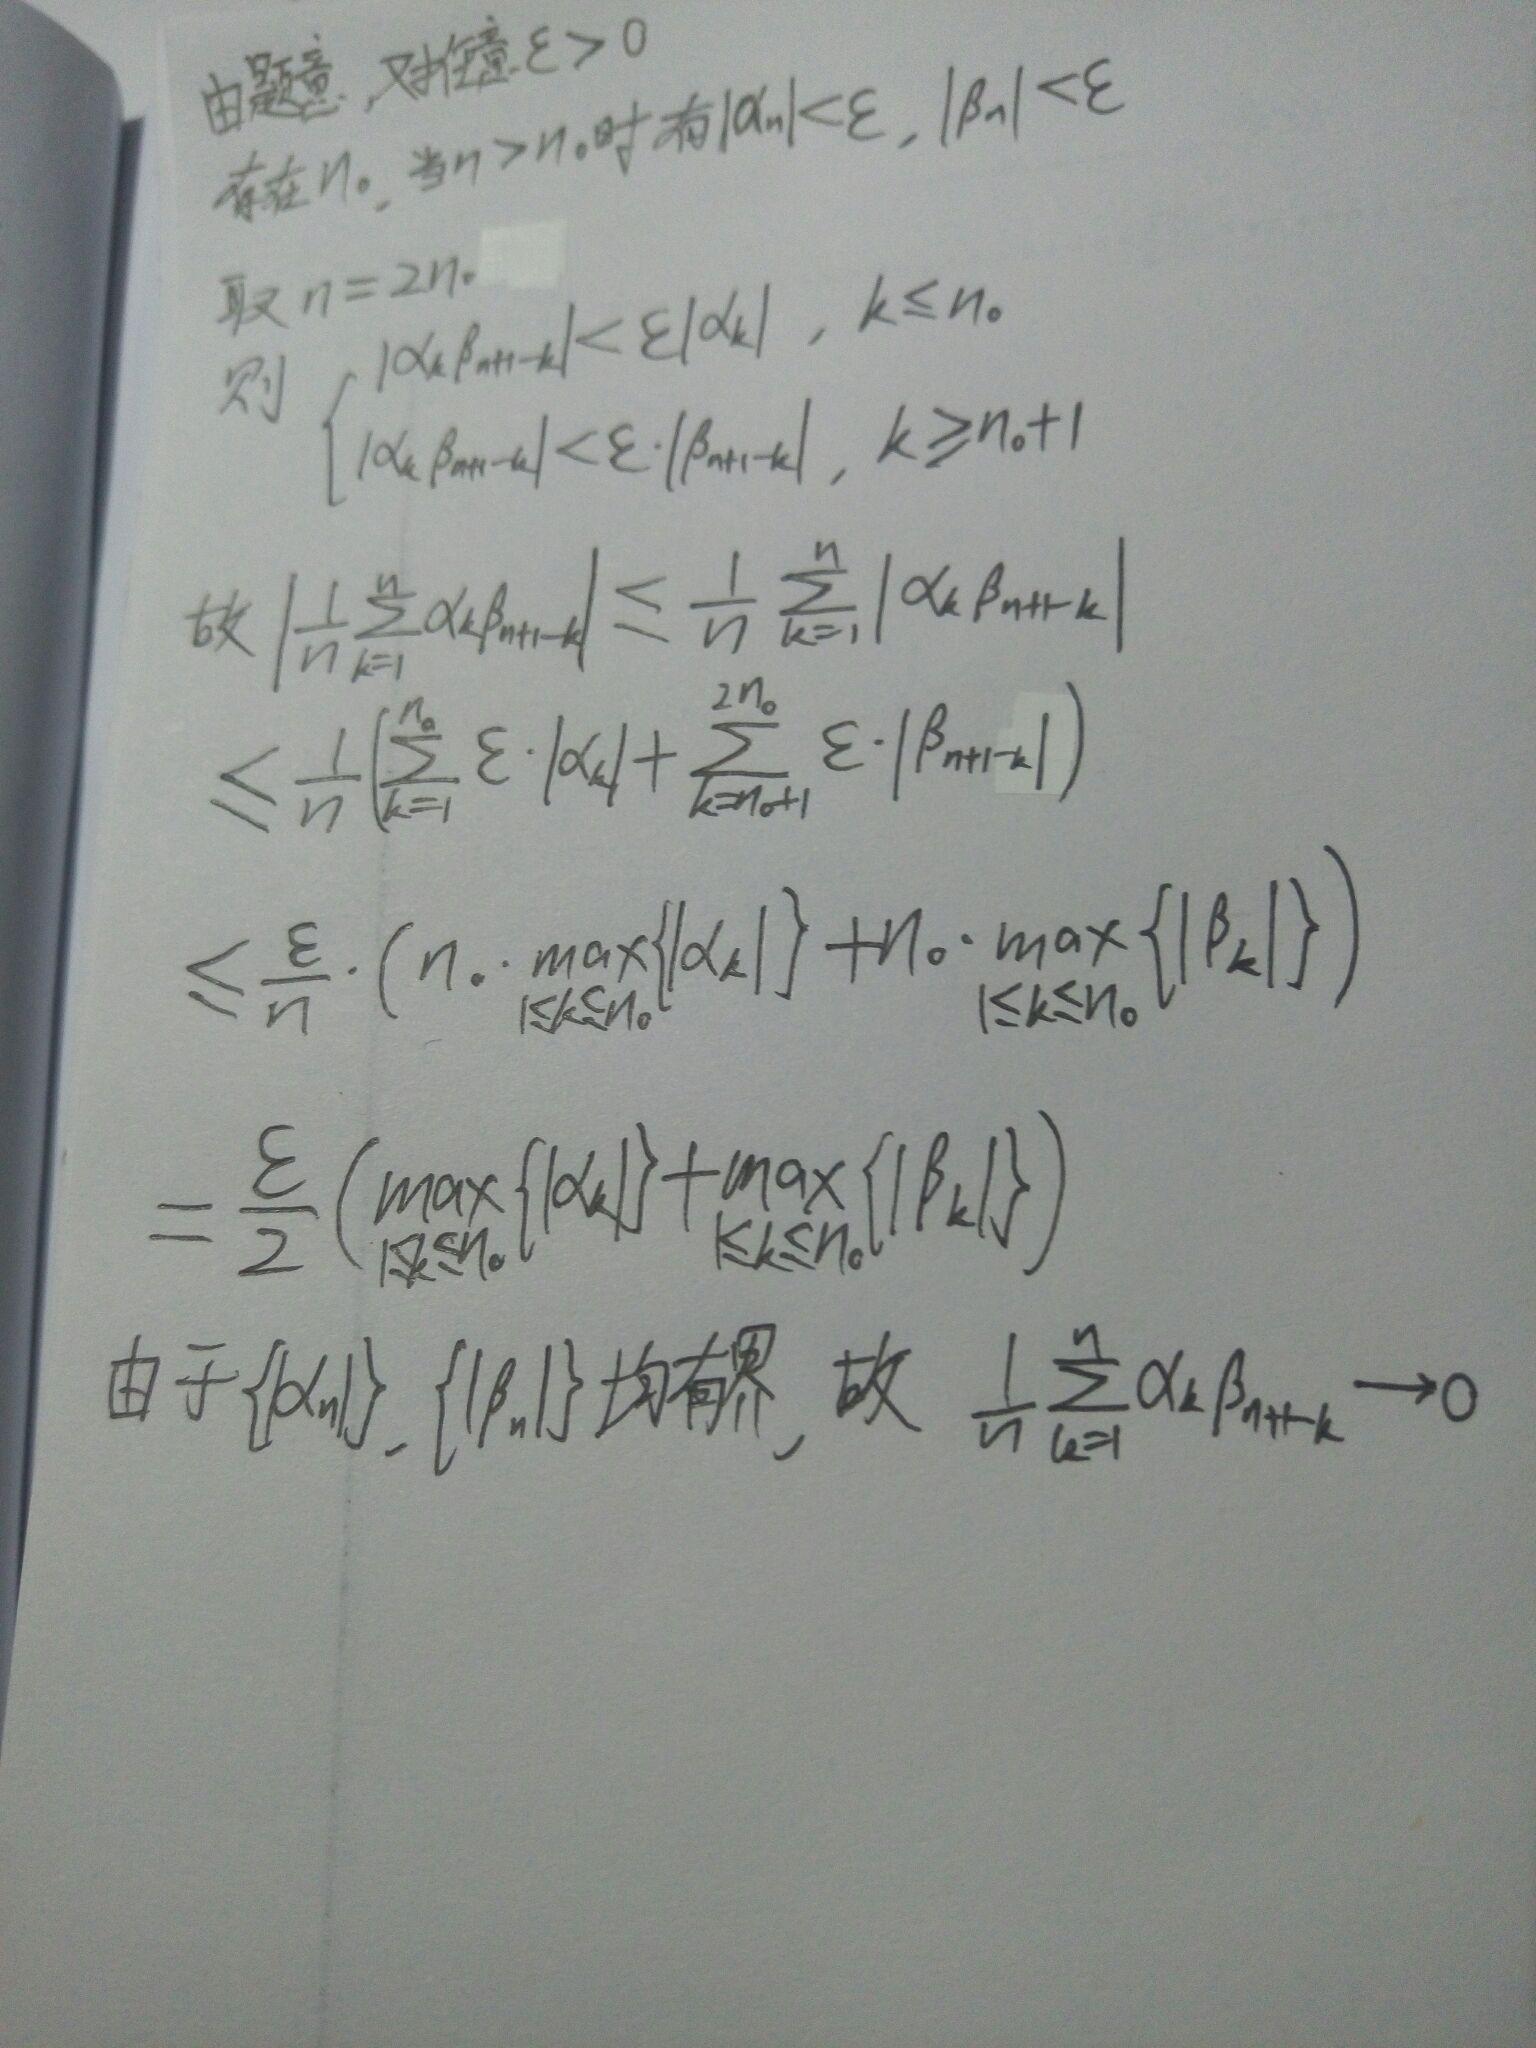 由题意,对任意ε>0
存在n₀,当n>n₀时有|αₙ|<ε,|βₙ|<ε
取n=2n₀
则 { |αₖβₙ₊₁₋ₖ|<ε|αₖ|, k≤n₀
|αₖβₙ₊₁₋ₖ|<ε·|βₙ₊₁₋ₖ|, k≥n₀+1
故 |1/n ∑_{k=1}^{n} αₖβₙ₊₁₋ₖ| ≤ 1/n ∑_{k=1}^{n} |αₖβₙ₊₁₋ₖ|
≤ 1/n (∑_{k=1}^{n₀} ε·|αₖ| + ∑_{k=n₀+1}^{2n₀} ε·|βₙ₊₁₋ₖ|)
≤ ε/n · (n₀· max_{1≤k≤n₀}{|αₖ|} + n₀· max_{1≤k≤n₀}{|βₖ|})
= ε/2 (max_{1≤k≤n₀}{|αₖ|} + max_{1≤k≤n₀}{|βₖ|})
由于{|αₙ|},{|βₙ|}均有界,故 1/n ∑_{k=1}^{n} αₖβₙ₊₁₋ₖ → 0